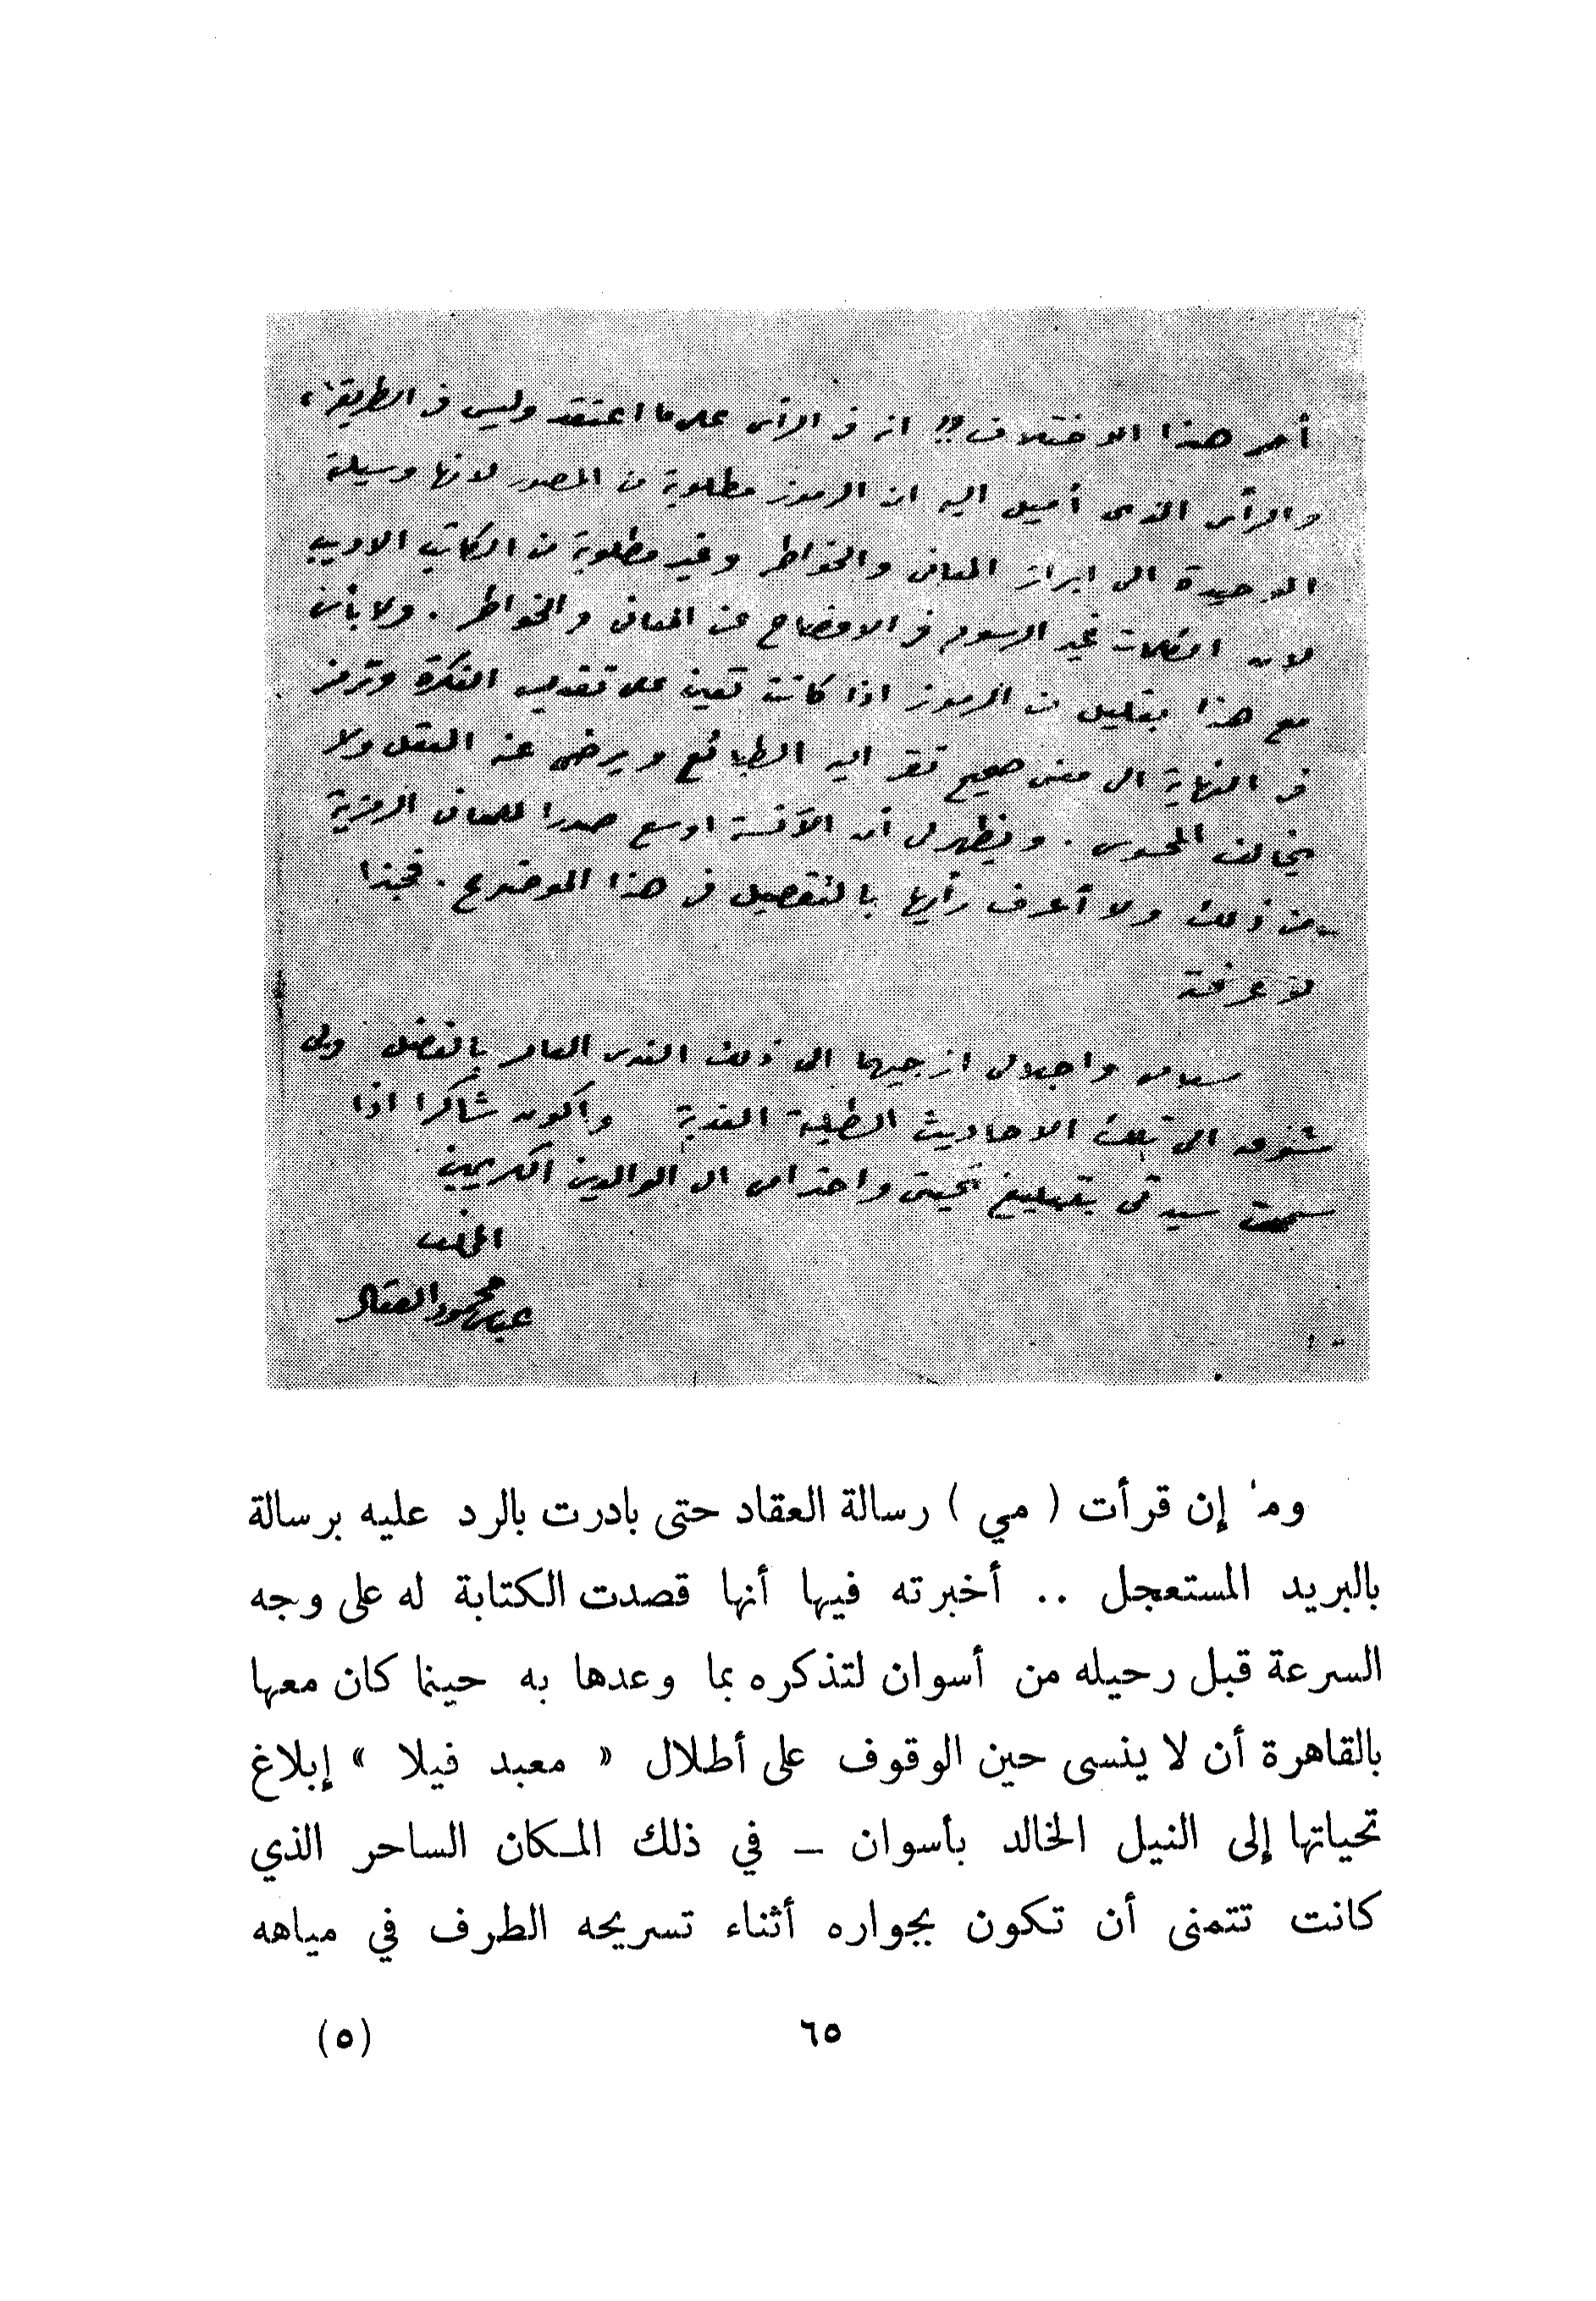 أمر هذا الاختلاف؟! انه فى الرأى على ما اعتقد وليس فى الطريقة،
والرأى الذى أميل اليه ان الرموز مطلوبة من المصور لانها وسيلته
الوحيدة الى ابراز المعانى والخواطر وغير مطلوبة من الكاتب الاديب
لان الكلمات غير الرسوم فى الافصاح عن المعانى والخواطر . ولا بأس
مع هذا بقليل من الرموز اذا كانت تعين على تقريب الفكرة وترمز
فى النهاية الى معنى صحيح تقر اليه الطبائع ويرضى عنه العقل ولا
يخالف المحسوس . ويظهر لى أن الآنسة اوسع صدرا للمعانى الرمزية
من ذلك ولا أعرف رأيها بالتفصيل فى هذا الموضوع . فحبذا
لو عرفته
سلامى واجلالى ازجيهما الى ذلك الندى العامر بالفضل وبى
شوق الى تلك الاحاديث الطلية العذبة واكون شاكرا اذا
سمحت سيدتى بتبليغ تحيتى واحترامى الى الوالدين الكريمين
المخلص
عباس محمود العقاد
وما إن قرأت ( مي ) رسالة العقاد حتى بادرت بالرد عليه برسالة
بالبريد المستعجل .. أخبرته فيها أنها قصدت الكتابة له على وجه
السرعة قبل رحيله من أسوان لتذكره بما وعدها به حينما كان معها
بالقاهرة أن لا ينسى حين الوقوف على أطلال « معبد فيلا » إبلاغ
تحياتها إلى النيل الخالد بأسوان – في ذلك المكان الساحر الذي
كانت تتمنى أن تكون بجواره أثناء تسريحه الطرف في مياهه
٦٥
(٥)